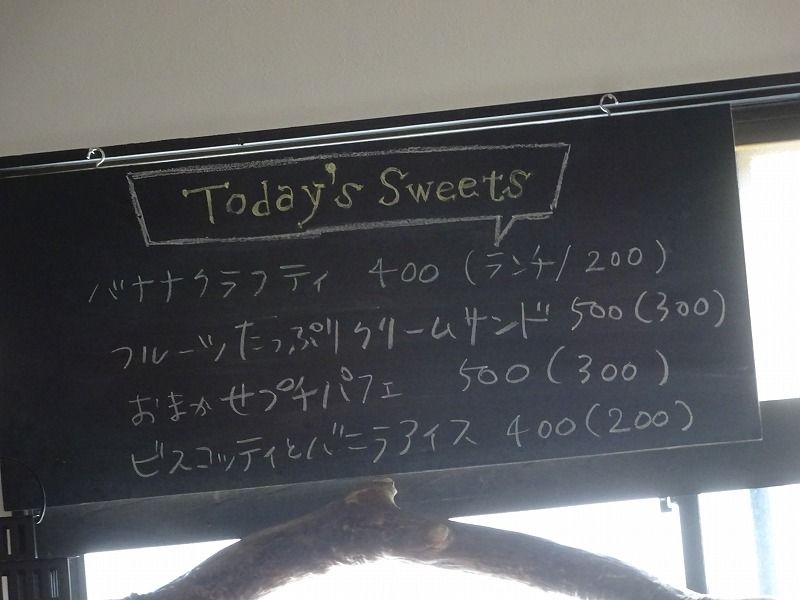 Today's Sweets
バナナクラフティ 400 (ランチ/200)
フルーツたっぷりクリームサンド 500(300)
おまかせプチパフェ 500(300)
ビスコッティとバニラアイス 400(200)